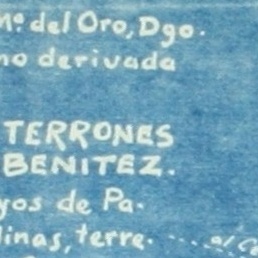 Mª del Oro, Dgo.
no derivada
TERRONES
BENITEZ.
yos de Pa-
linas, terre-
al Ca